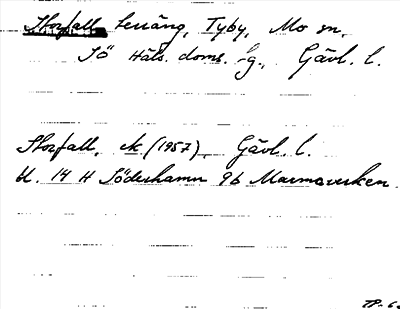 Storfall Svedäng, Tyby, Mo sn,
Sö Häls. doms. sg., Gävl. l.
Storfall, ek (1957), Gävl. l.
bl. 14 H Söderhamn 9b Marmaverken.
TP-6